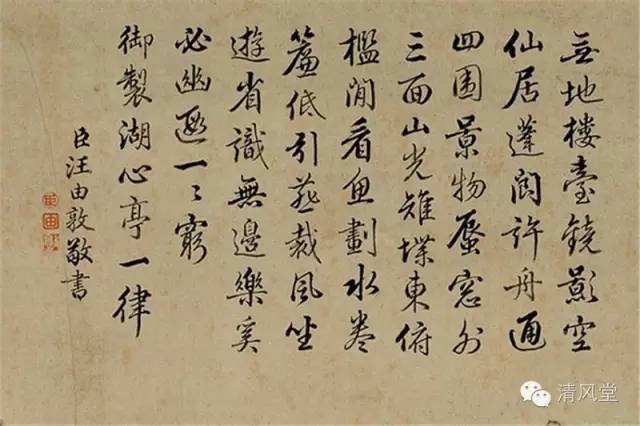 無地樓臺鏡影空
仙居蓬閬許舟通
四圍景物蜃窓外
三面山光雉堞東俯
檻閒看魚劃水卷
簾低引燕裁風坐
遊省識無邊樂奚
必幽遐一一窮
御製湖心亭一律
臣汪由敦敬書
清风堂